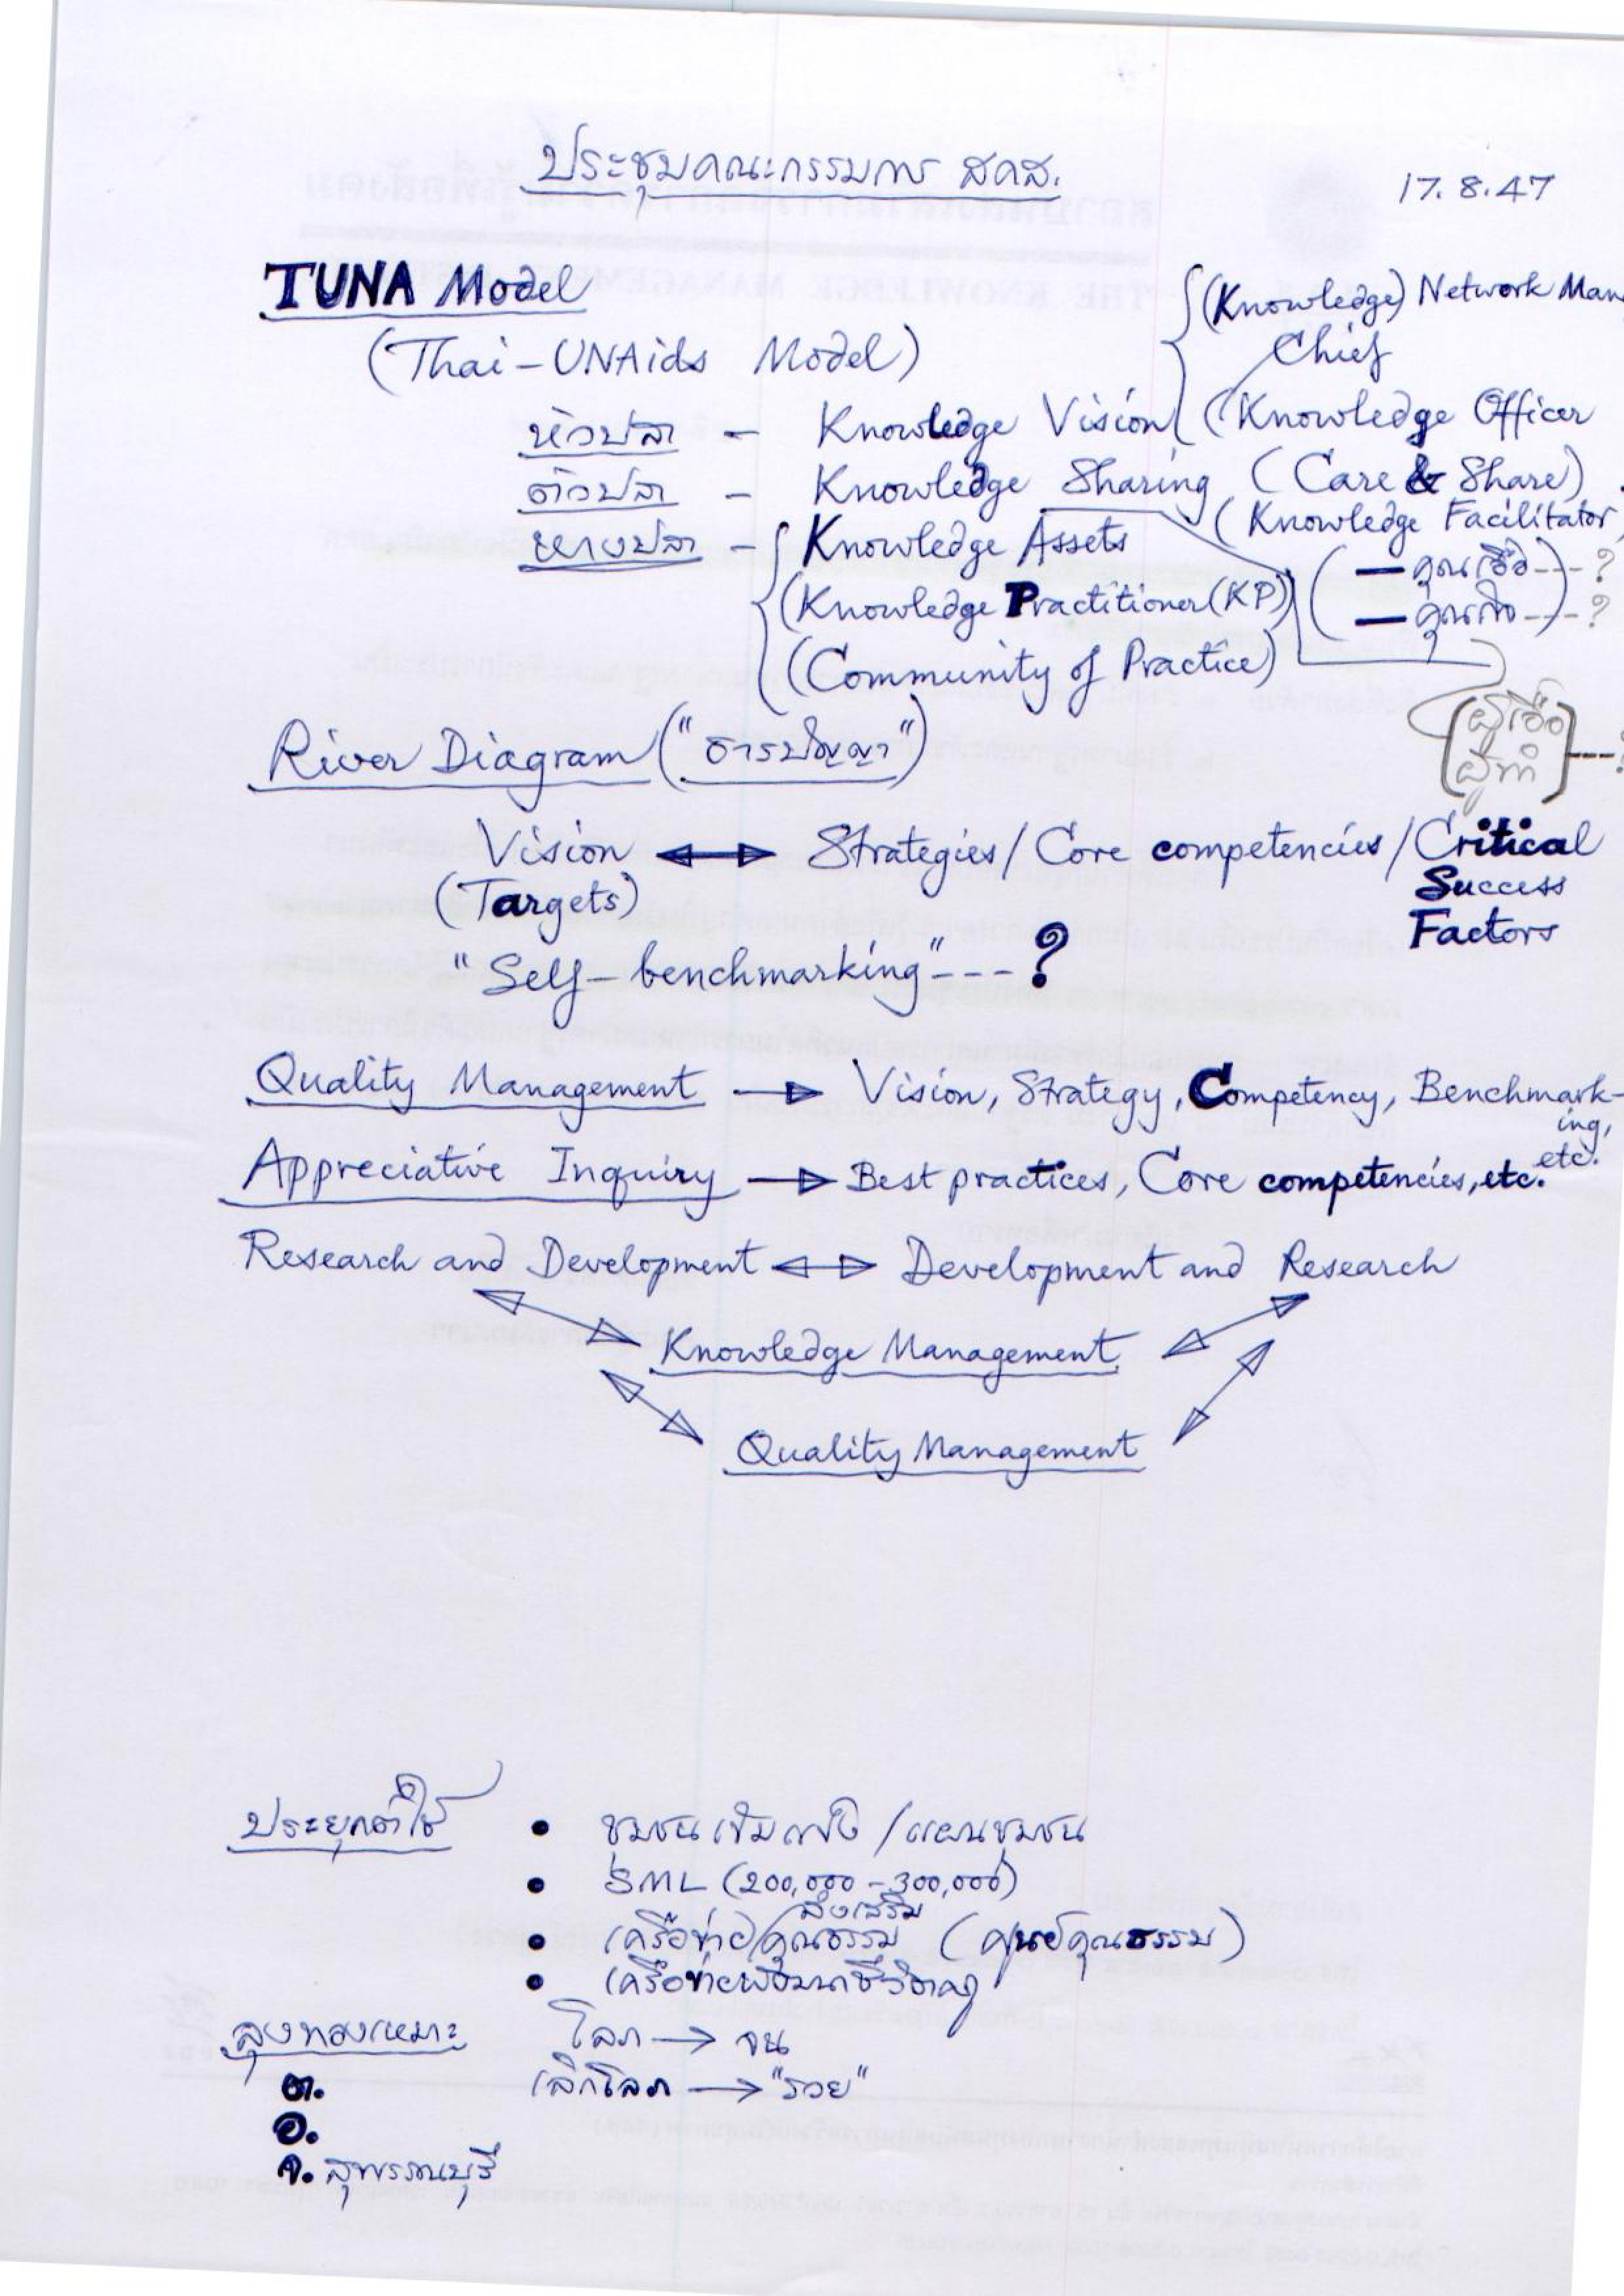 ประชุมคณะกรรมการ สคส.
17.8.47
TUNA Model
(Thai-UNAids Model)
{(Knowledge) Network Man
Chief
หัวปลา - Knowledge Vision (Knowledge Officer
ตัวปลา - Knowledge Sharing (Care & Share)
(Knowledge Facilitator)
หางปลา - Knowledge Assets
(Knowledge Practitioner (KP))
(Community of Practice)
(— คุณเอื้อ ---?
— คุณกิจ ---?)
[ผู้เอื้อ
ผู้ทำ] ---?
River Diagram ("ธารปัญญา")
Vision ↔ Strategies / Core competencies / Critical
Success
Factors
(Targets)
"Self-benchmarking" --- ?
Quality Management → Vision, Strategy, Competency, Benchmark-
ing,
etc.
Appreciative Inquiry → Best practices, Core competencies, etc.
Research and Development ↔ Development and Research
Knowledge Management
Quality Management
ประยุกต์ใช้
• ชุมชนเข้มแข็ง / แผนชุมชน
• SML (200,000 - 300,000)
• เครือข่ายส่งเสริมคุณธรรม (ศูนย์คุณธรรม)
• เครือข่าย
ลุงทองเหมาะ โลภ → จน
ต. เลิกโลภ → "รวย"
อ.
จ. สุพรรณบุรี